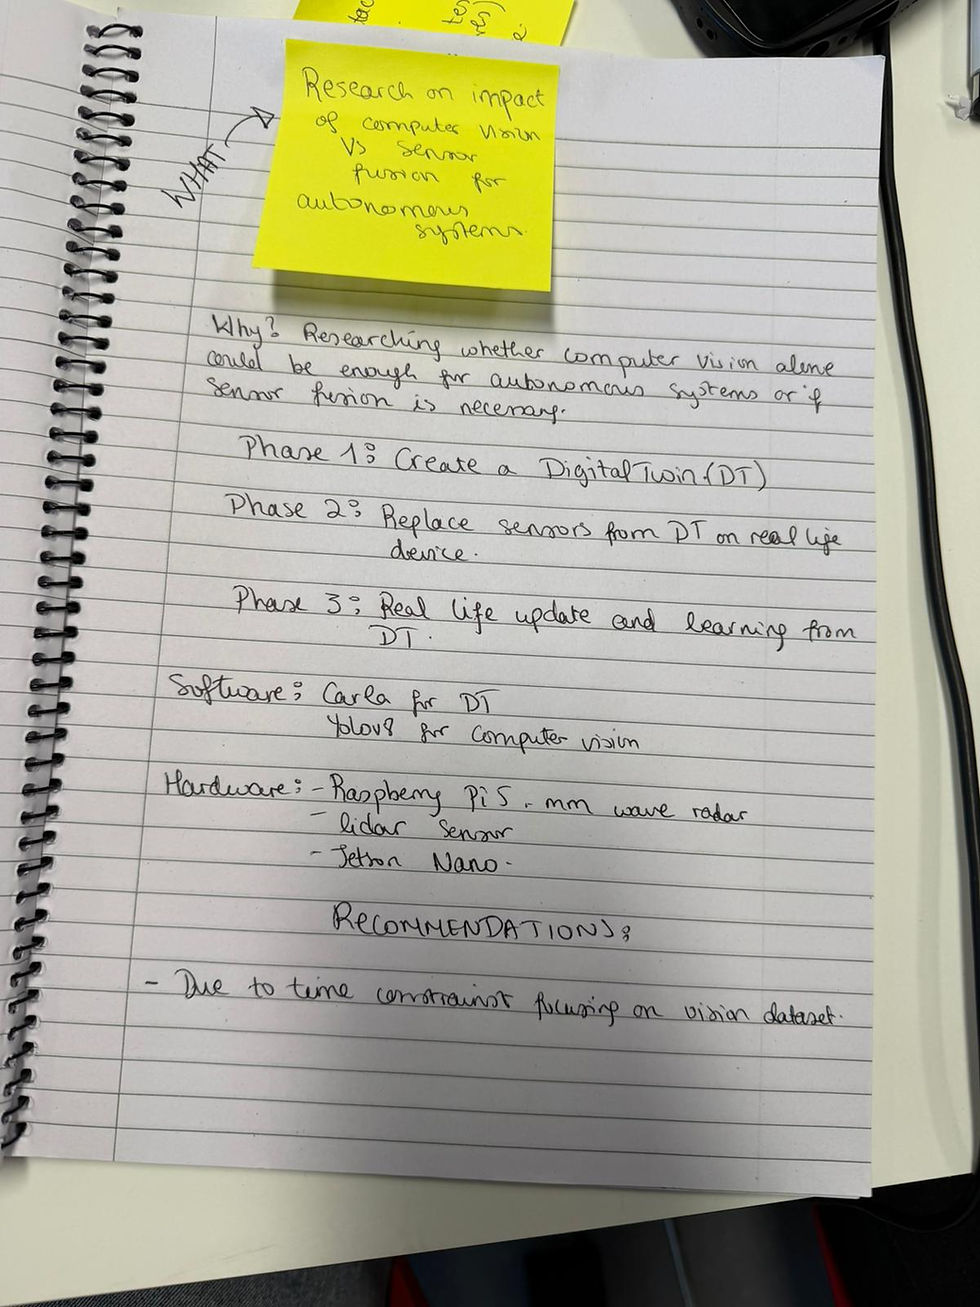 Research on impact
of computer vision
Vs sensor
fusion for
autonomous
systems.
WHAT
Why? Researching whether computer vision alone
could be enough for autonomous systems or if
sensor fusion is necessary.
Phase 1: Create a Digital Twin (DT)
Phase 2: Replace sensors from DT on real life
device.
Phase 3: Real life update and learning from
DT.
Software: Carla for DT
Yolov8 for computer vision
Hardware: - Raspberry Pi 5 . mm wave radar
- lidar sensor
- Jetson Nano.
RECOMMENDATIONS:
- Due to time constrainst focusing on vision dataset.